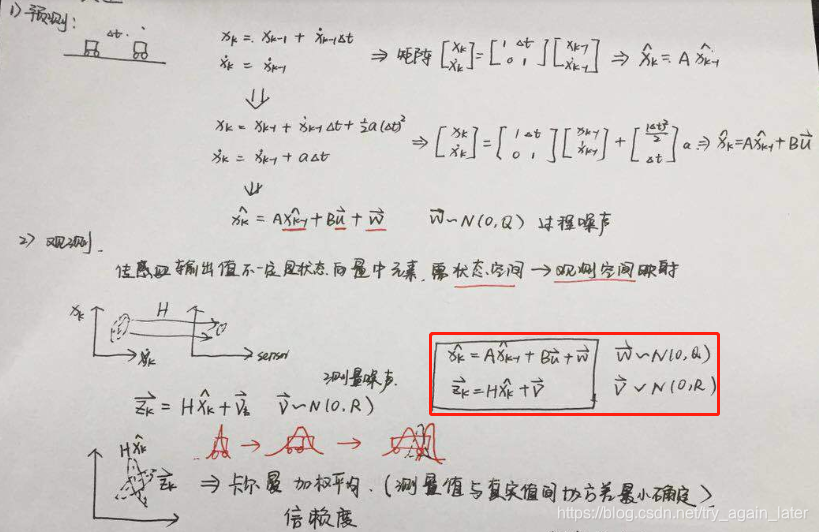 1) 预测:
Δt
x_k = x_{k-1} + ẋ_{k-1}Δt
ẋ_k = ẋ_{k-1}
⇒ 矩阵 [x_k ẋ_k] = [1 Δt 0 1] [x_{k-1} ẋ_{k-1}] ⇒ x̂_k = A x̂_{k-1}
⇓
x_k = x_{k-1} + ẋ_{k-1}Δt + ½a(Δt)²
ẋ_k = ẋ_{k-1} + aΔt
⇒ [x_k ẋ_k] = [1 Δt 0 1] [x_{k-1} ẋ_{k-1}] + [(Δt)²/2 Δt] a ⇒ x̂_k = Ax̂_{k-1} + Bu⃗
⇓
x̂_k = Ax̂_{k-1} + Bu⃗ + w⃗ w⃗ ~ N(0,Q) 过程噪声
2) 观测.
传感器输出值不一定是状态向量中元素, 需状态空间 → 观测空间映射
x_k H
ẋ_k sensor
x̂_k = Ax̂_{k-1} + Bu⃗ + w⃗ w⃗ ~ N(0,Q)
z⃗_k = Hx̂_k + v⃗ v⃗ ~ N(0,R)
测量噪声.
z⃗_k = Hx̂_k + v⃗_k v⃗ ~ N(0,R)
→ →
Hx̂_k
z⃗_k
⇒ 卡尔曼加权平均. (测量值与真实值间协方差最小确定)
信赖度
https://blog.csdn.net/try_again_later